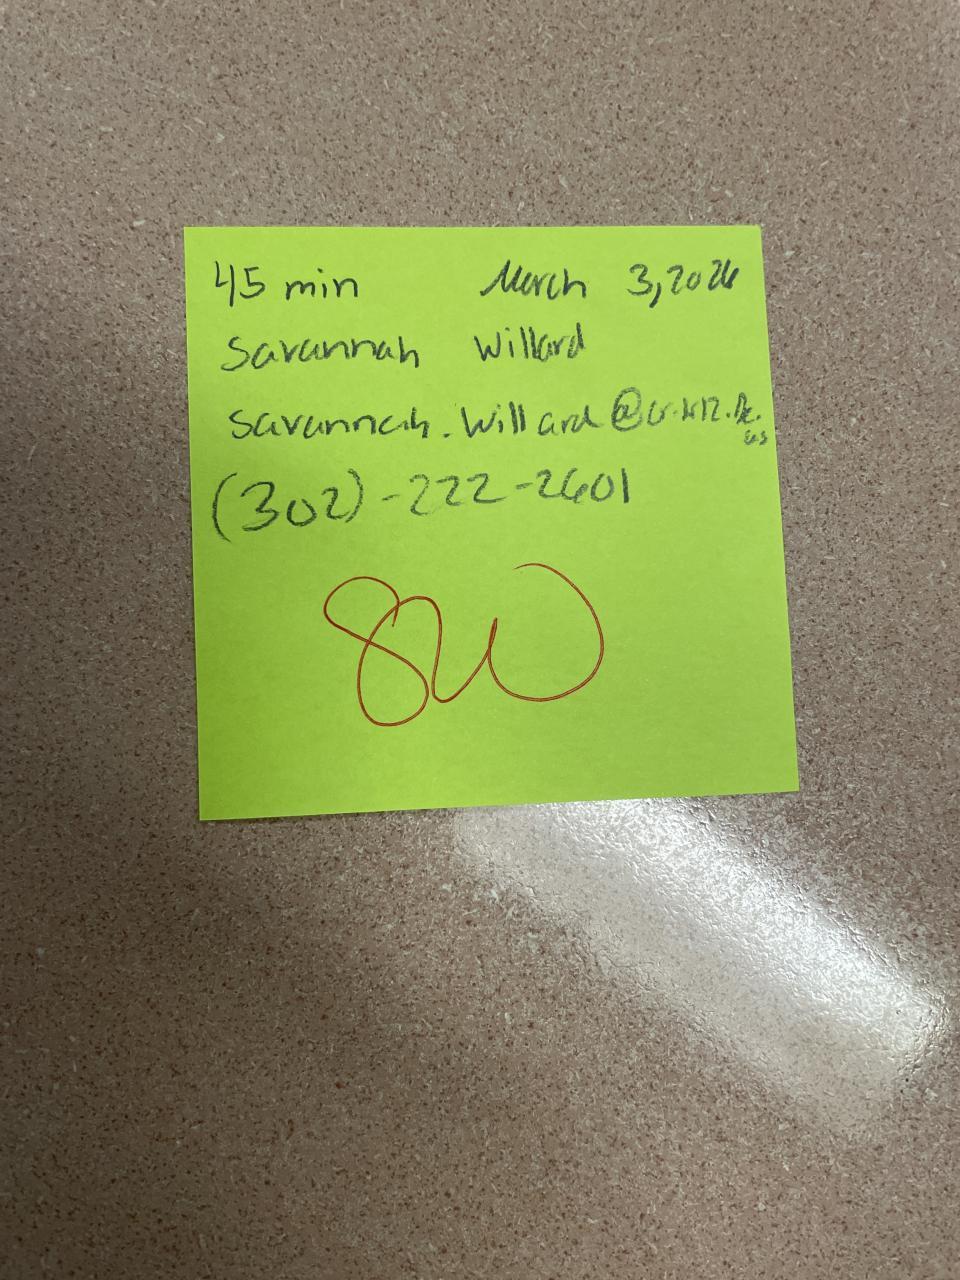 45 min March 3, 2026
Savannah Willard
savannah.willard@cr.k12.de.us
(302)-222-2601
SW